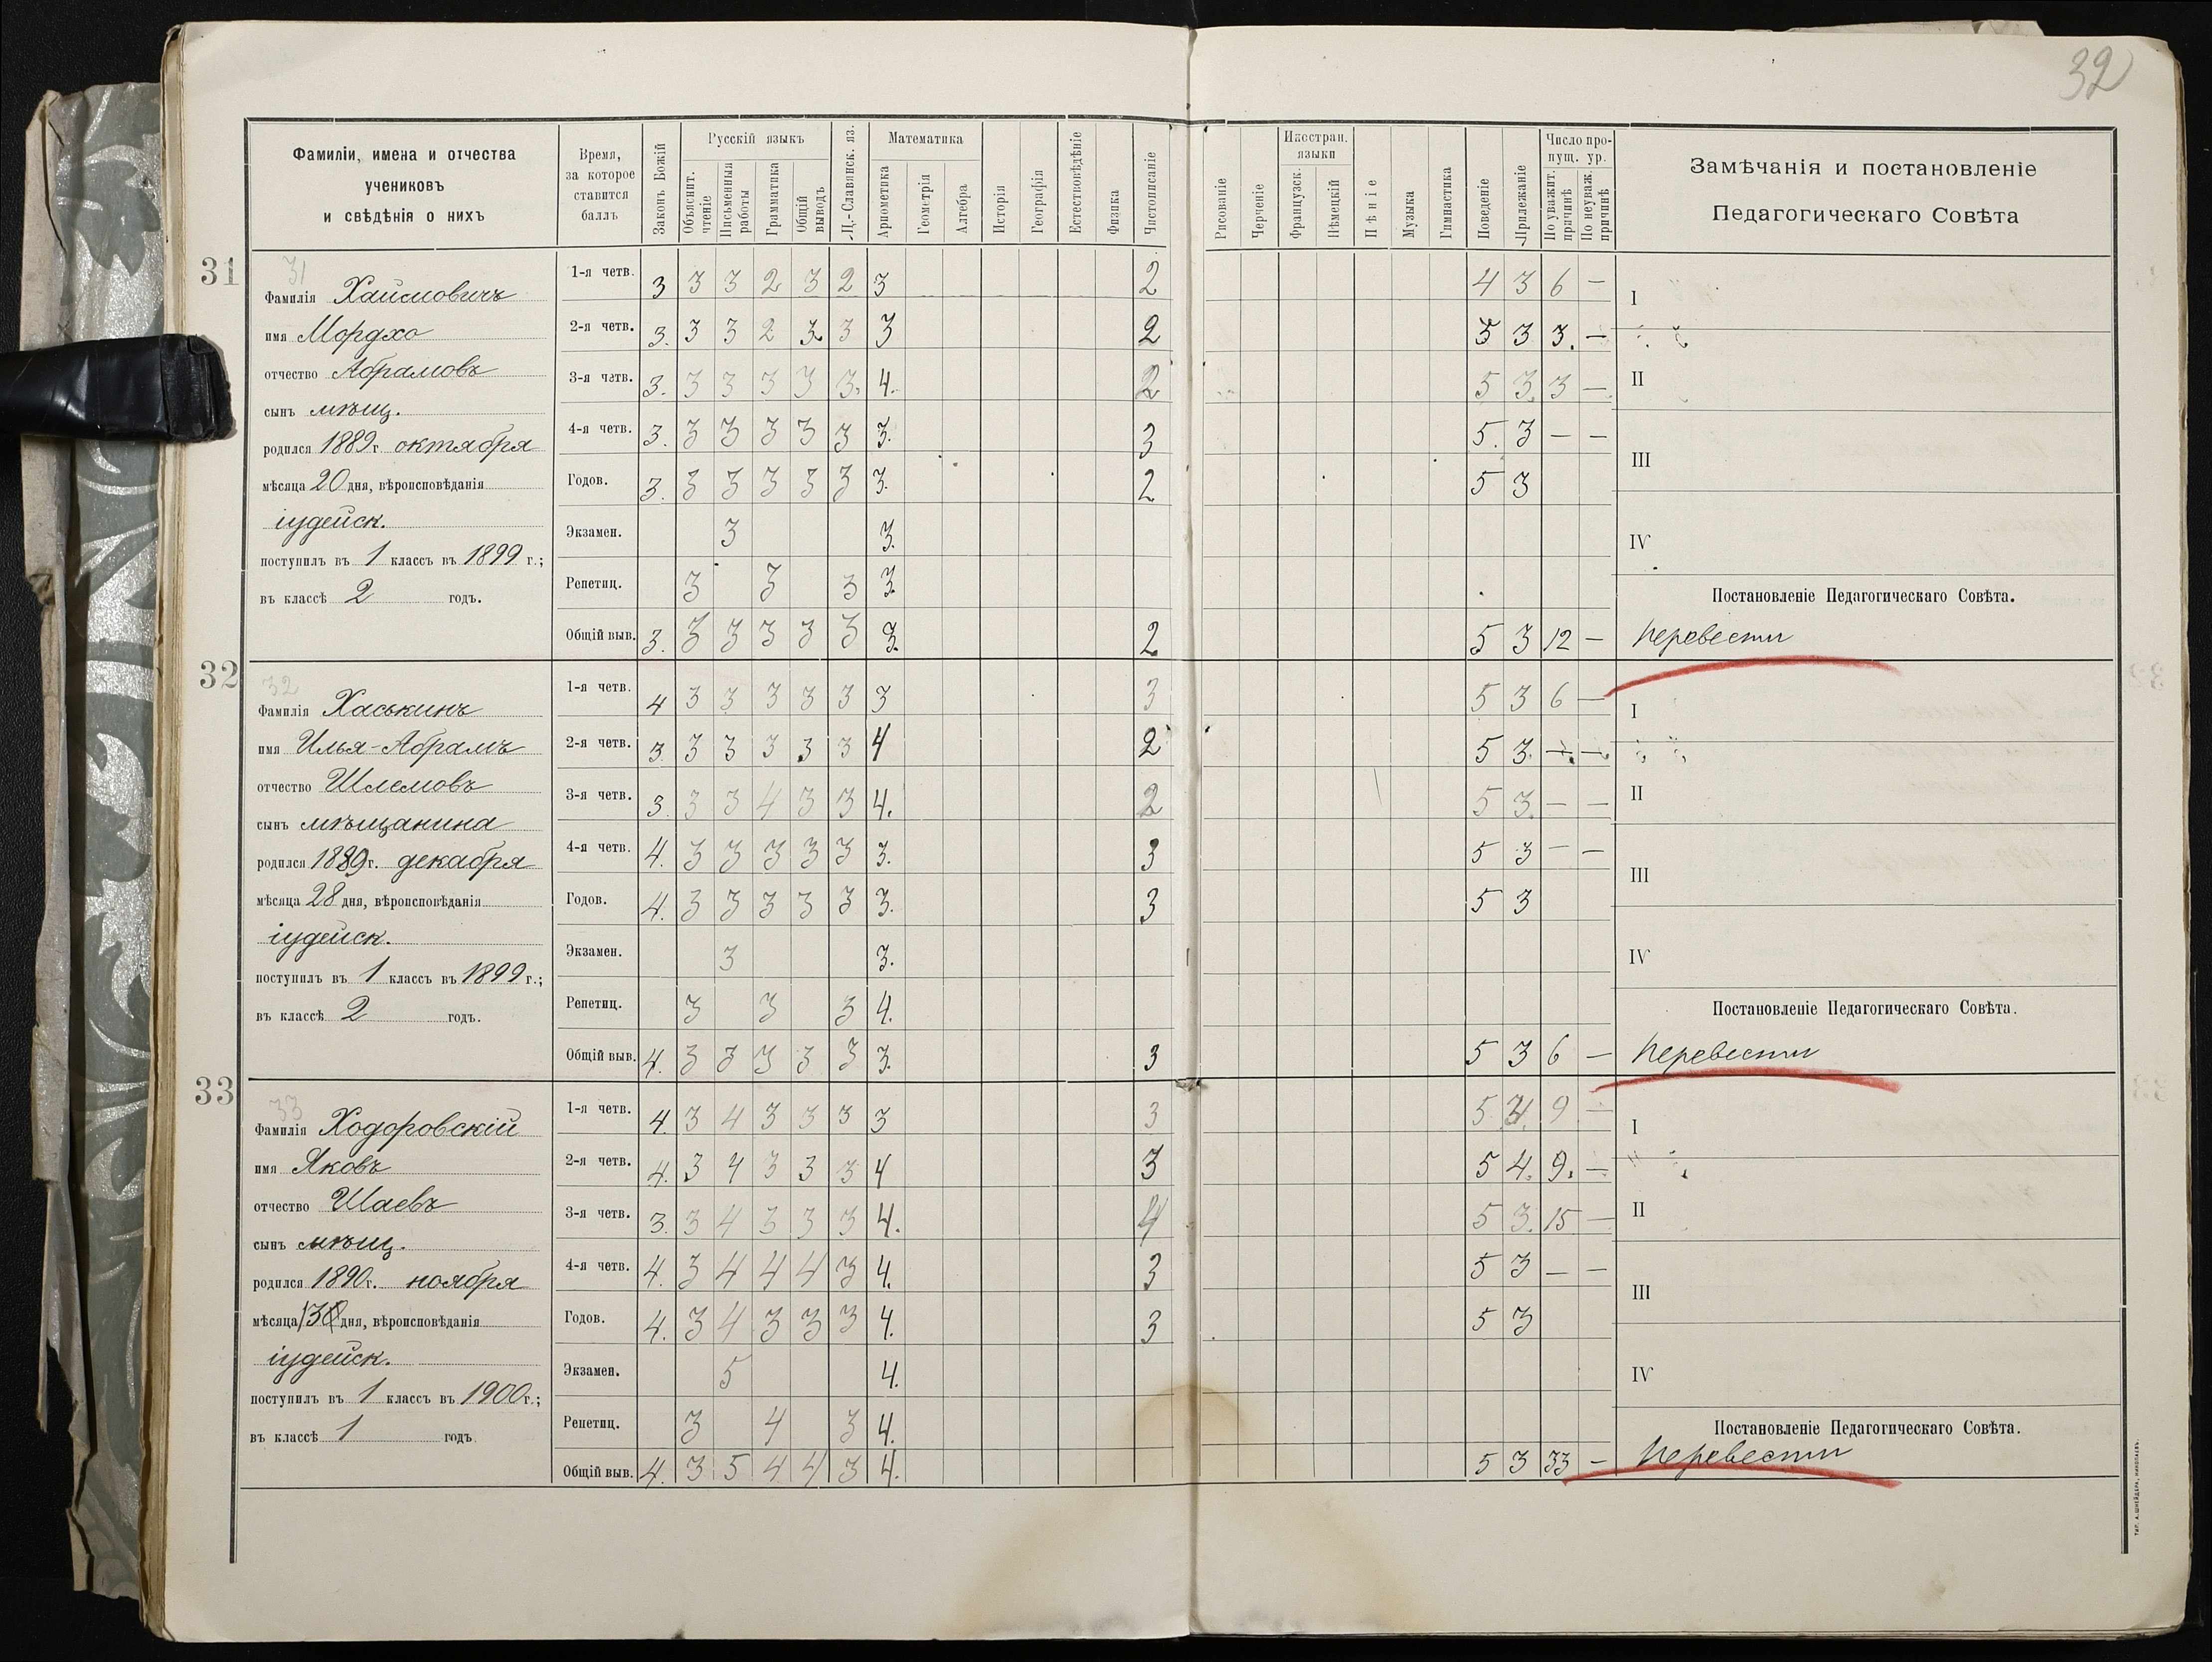 32
Фамиліи, имена и отчества
учениковъ
и свѣдѣнія о нихъ
Время,
за которое
ставится
баллъ
Законъ Божій
Русскій языкъ
Объяснит. чтеніе
Письменныя работы
Грамматика
Общій выводъ
Ц.-Славянск. яз.
Математика
Ариѳметика
Геометрія
Алгебра
Исторія
Географія
Естествовѣдѣніе
Физика
Чистописаніе
Рисованіе
Черченіе
Иностран. языки
Французск.
Нѣмецкій
Пѣніе
Музыка
Гимнастика
Поведеніе
Прилежаніе
Число пропущ. ур.
По уважит. причинѣ
По неуваж. причинѣ
Замѣчанія и постановленіе
Педагогическаго Совѣта
31
31
Фамилія Хаимовичъ
имя Мордхо
отчество Абрамовъ
сынъ мѣщ.
родился 1889 г. октября
мѣсяца 20 дня, вѣроисповѣданія
іудейск.
поступилъ въ 1 классъ въ 1899 г.;
въ классѣ 2 годъ.
1-я четв. 3 3 3 2 3 2 3 2 4 3 6 —
2-я четв. 3. 3 3 2 3 3 3 2 5 3 3. —
3-я четв. 3. 3 3 3 3 3. 4. 2 5 3. 3 —
4-я четв. 3. 3 3 3 3 3 3. 3 5. 3 — —
Годов. 3. 3 3 3 3 3 3. 2 5 3
Экзамен. 3 3.
Репетиц. 3 3 3 3.
Общій выв. 3. 3 3 3 3 3 3. 2 5 3 12 —
I
II
III
IV
Постановленіе Педагогическаго Совѣта.
Перевести
32
32
Фамилія Хаськинъ
имя Илья-Абрамъ
отчество Шлемовъ
сынъ мѣщанина
родился 1889 г. декабря
мѣсяца 28 дня, вѣроисповѣданія
іудейск.
поступилъ въ 1 классъ въ 1899 г.;
въ классѣ 2 годъ.
1-я четв. 4 3 3 3 3 3 3 3 5 3 6 —
2-я четв. 3. 3 3 3 3 3 4 2 5 3. — —
3-я четв. 3. 3 3 4 3 3 4. 2 5 3. — —
4-я четв. 4. 3 3 3 3 3 3. 3 5 3 — —
Годов. 4. 3 3 3 3 3 3. 3 5 3
Экзамен. 3 3.
Репетиц. 3 3 3 4.
Общій выв. 4. 3 3 3 3 3 3. 3 5 3 6 —
I
II
III
IV
Постановленіе Педагогическаго Совѣта.
Перевести
33
33
Фамилія Ходоровскій
имя Яковъ
отчество Шаевъ
сынъ мѣщ.
родился 1890 г. ноября
мѣсяца дня, вѣроисповѣданія
іудейск.
поступилъ въ 1 классъ въ 1900 г.;
въ классѣ 1 годъ
1-я четв. 4. 3 4 3 3 3 3 3 5 9 —
2-я четв. 4. 3 4 3 3 3 4 3 5 4. 9. —
3-я четв. 3. 3 4 3 3 3 4. 4 5 3. 15 —
4-я четв. 4. 3 4 4 4 3 4. 3 5 3 — —
Годов. 4. 3 4 3 3 3 4. 3 5 3
Экзамен. 5 4.
Репетиц. 3 4 3 4.
Общій выв. 4. 3 5 4 4 3 4. 5 3 33 —
I
II
III
IV
Постановленіе Педагогическаго Совѣта.
Перевести
ТИП. А. ШНЕЙДЕРА, НИКОЛАЕВЪ.